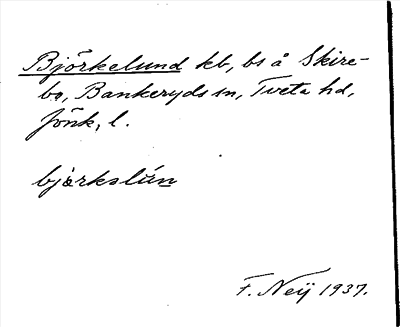 Björkelund kb, bs å Skire-
bo, Bankeryds sn, Tveta hd,
Jönk, l.
bjærkslún
F. Neij 1937.